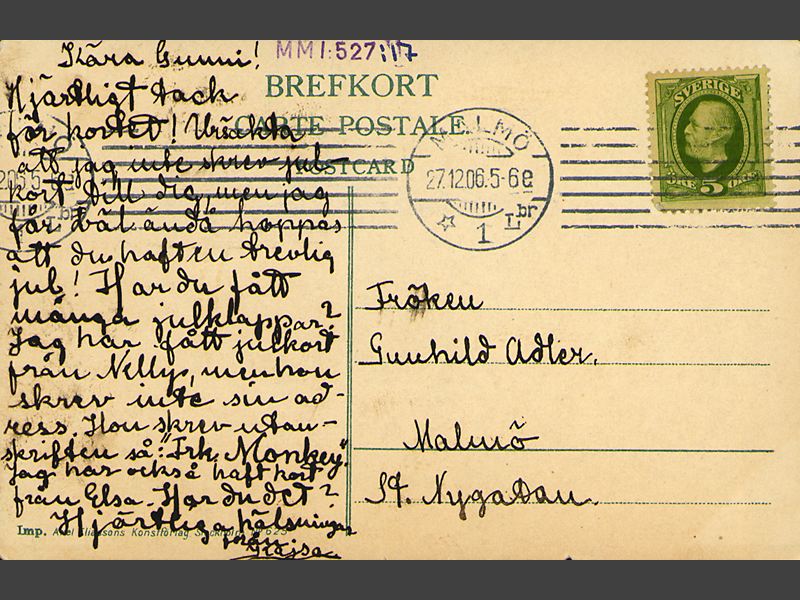 Kära Gunni!
Hjärtligt tack
för kortet! Ursäkta
att jag inte skrev jul-
kort till dig, men jag
får väl ändå hoppas
att du haft en trevlig
jul! Har du fått
många julklappar?
Jag har fått julkort
från Nelly, men hon
skrev inte sin ad-
ress. Hon skrev utan-
skriften så: "Frk. Monkey".
Jag har också haft kort
från Elsa. Har du det?
Hjärtliga hälsningar
från
Kajsa
MM 1:527:17
BREFKORT
CARTE POSTALE
POSTCARD
MALMÖ
27.12.06.5-6e
1 L br
SVERIGE
ÖRE 5 ÖRE
Fröken
Gunhild Adler.
Malmö
St. Nygatan.
Imp. Axel Eliassons Konstförlag Stockholm N:o 623